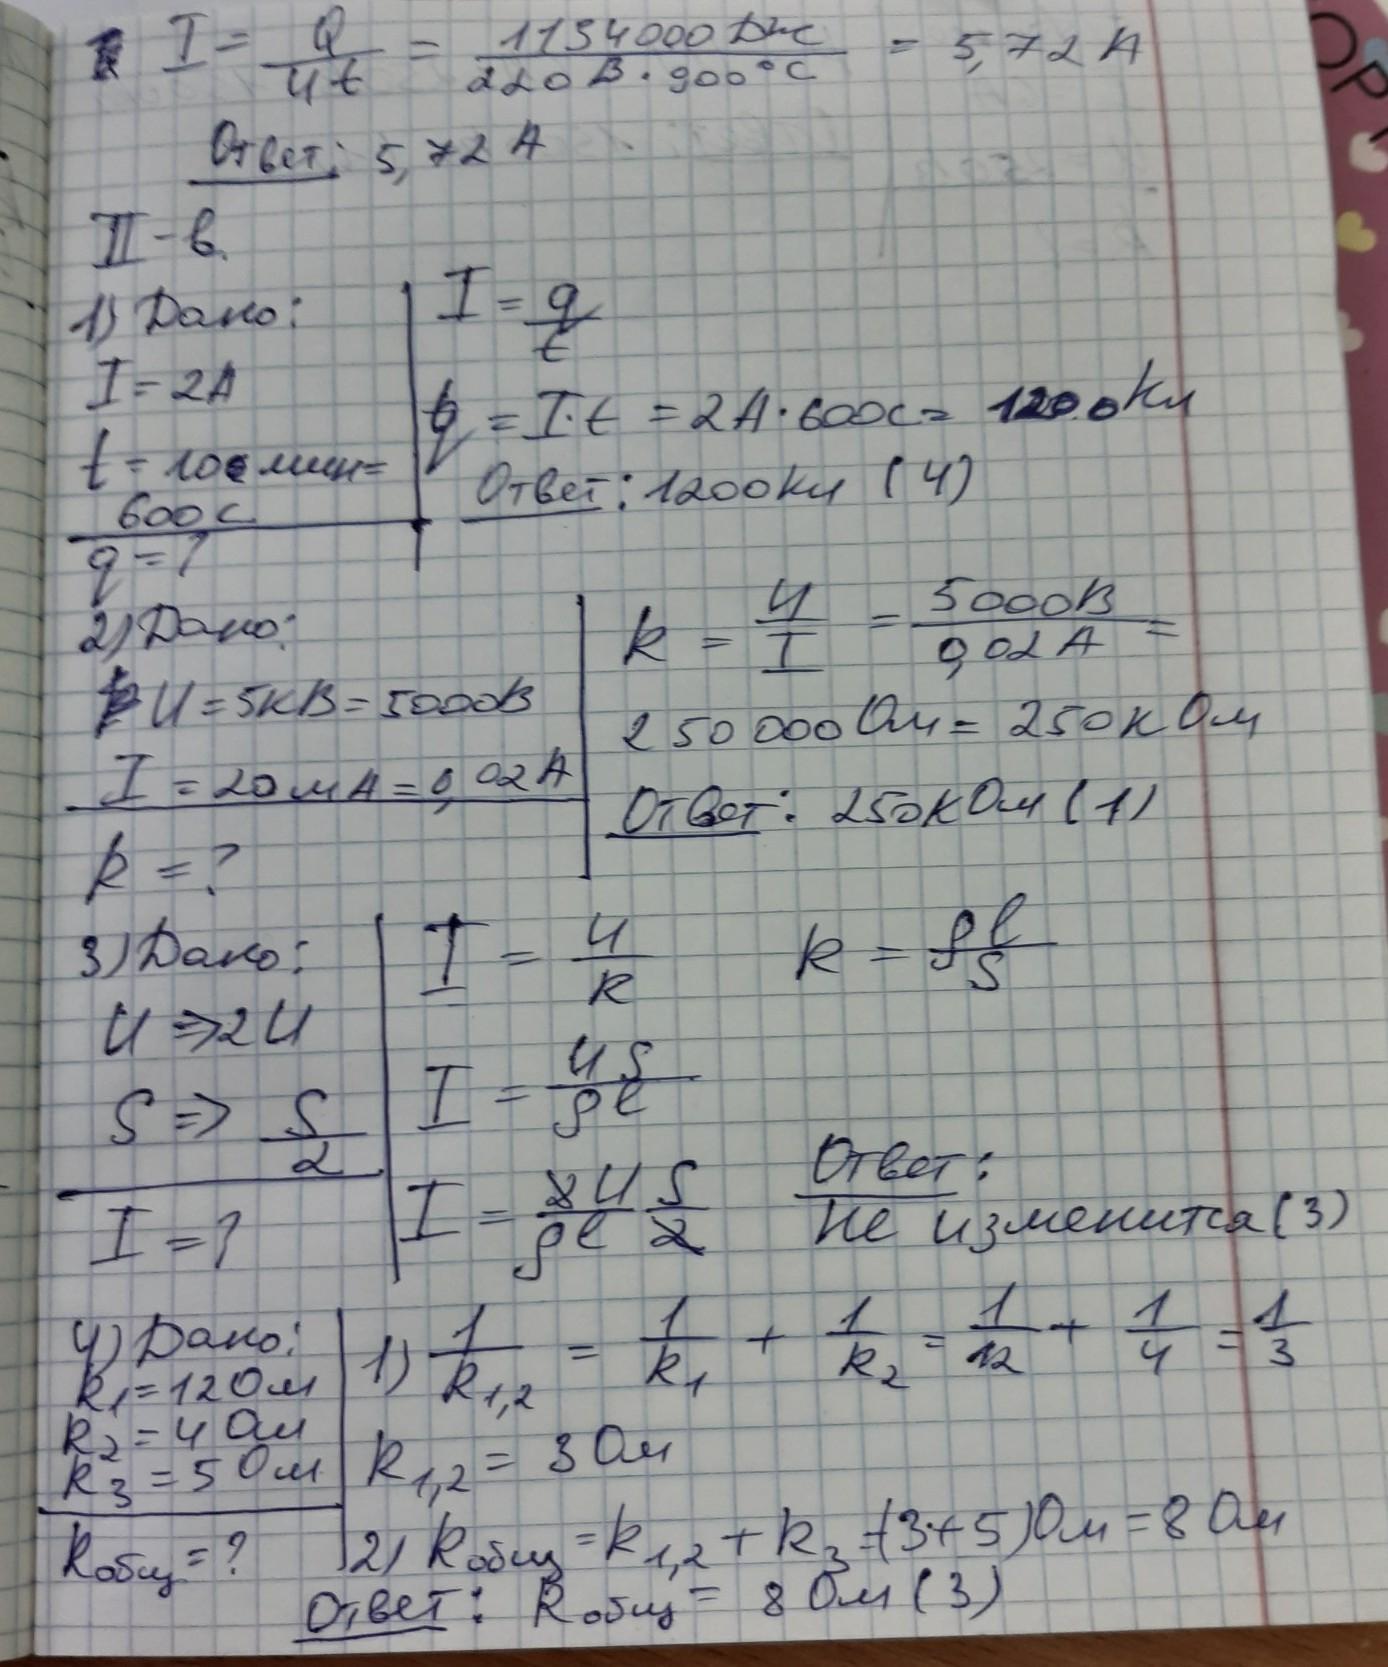 I = Q/Ut = 1134000 Дж/220 В · 900°С = 5,72 А
Ответ: 5,72 А
II - в.
1) Дано:
I = 2А
t = 10 мин =
600 с
q = ?
I = q/t
q = I·t = 2А·600с = 1200Кл
Ответ: 1200Кл (4)
2) Дано:
U = 5кВ = 5000В
I = 20 мА = 0,02А
R = ?
R = U/I = 5000В/0,02А =
250 000 Ом = 250 кОм
Ответ: 250кОм (1)
3) Дано:
U => 2U
S => S/2
I = ?
I = U/R R = ρl/S
I = US/ρl
I = 2U/ρl S/2
Ответ:
не изменится (3)
4) Дано:
R1 = 12 Ом
R2 = 4 Ом
R3 = 5 Ом
Rобщ = ?
1) 1/R1,2 = 1/R1 + 1/R2 = 1/12 + 1/4 = 1/3
R1,2 = 3 Ом
2) Rобщ = R1,2 + R3 = (3+5) Ом = 8 Ом
Ответ: Rобщ = 8 Ом (3)